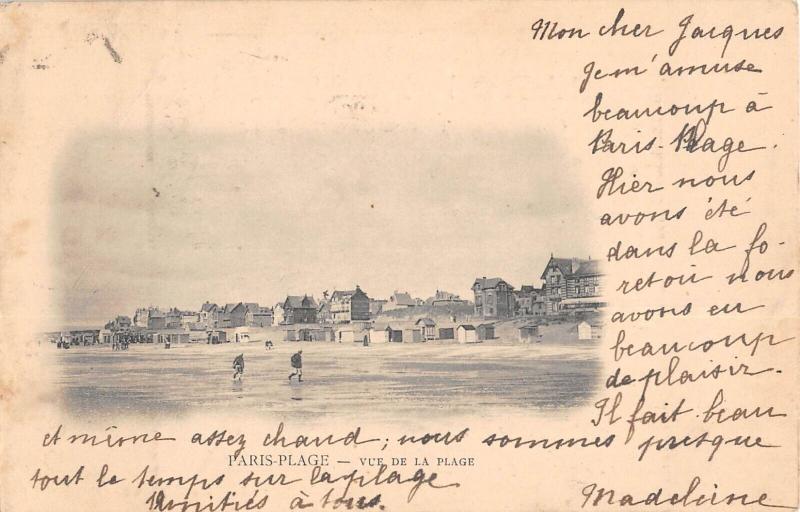 Mon cher Jacques
Je m'amuse
beaucoup à
Paris-Plage.
Hier nous
avons été
dans la fo-
ret où nous
avons eu
beaucoup
de plaisir.
Il fait beau
et même assez chaud; nous sommes presque
tout le temps sur la plage
Amitiés à tous.
Madeleine
PARIS-PLAGE — VUE DE LA PLAGE